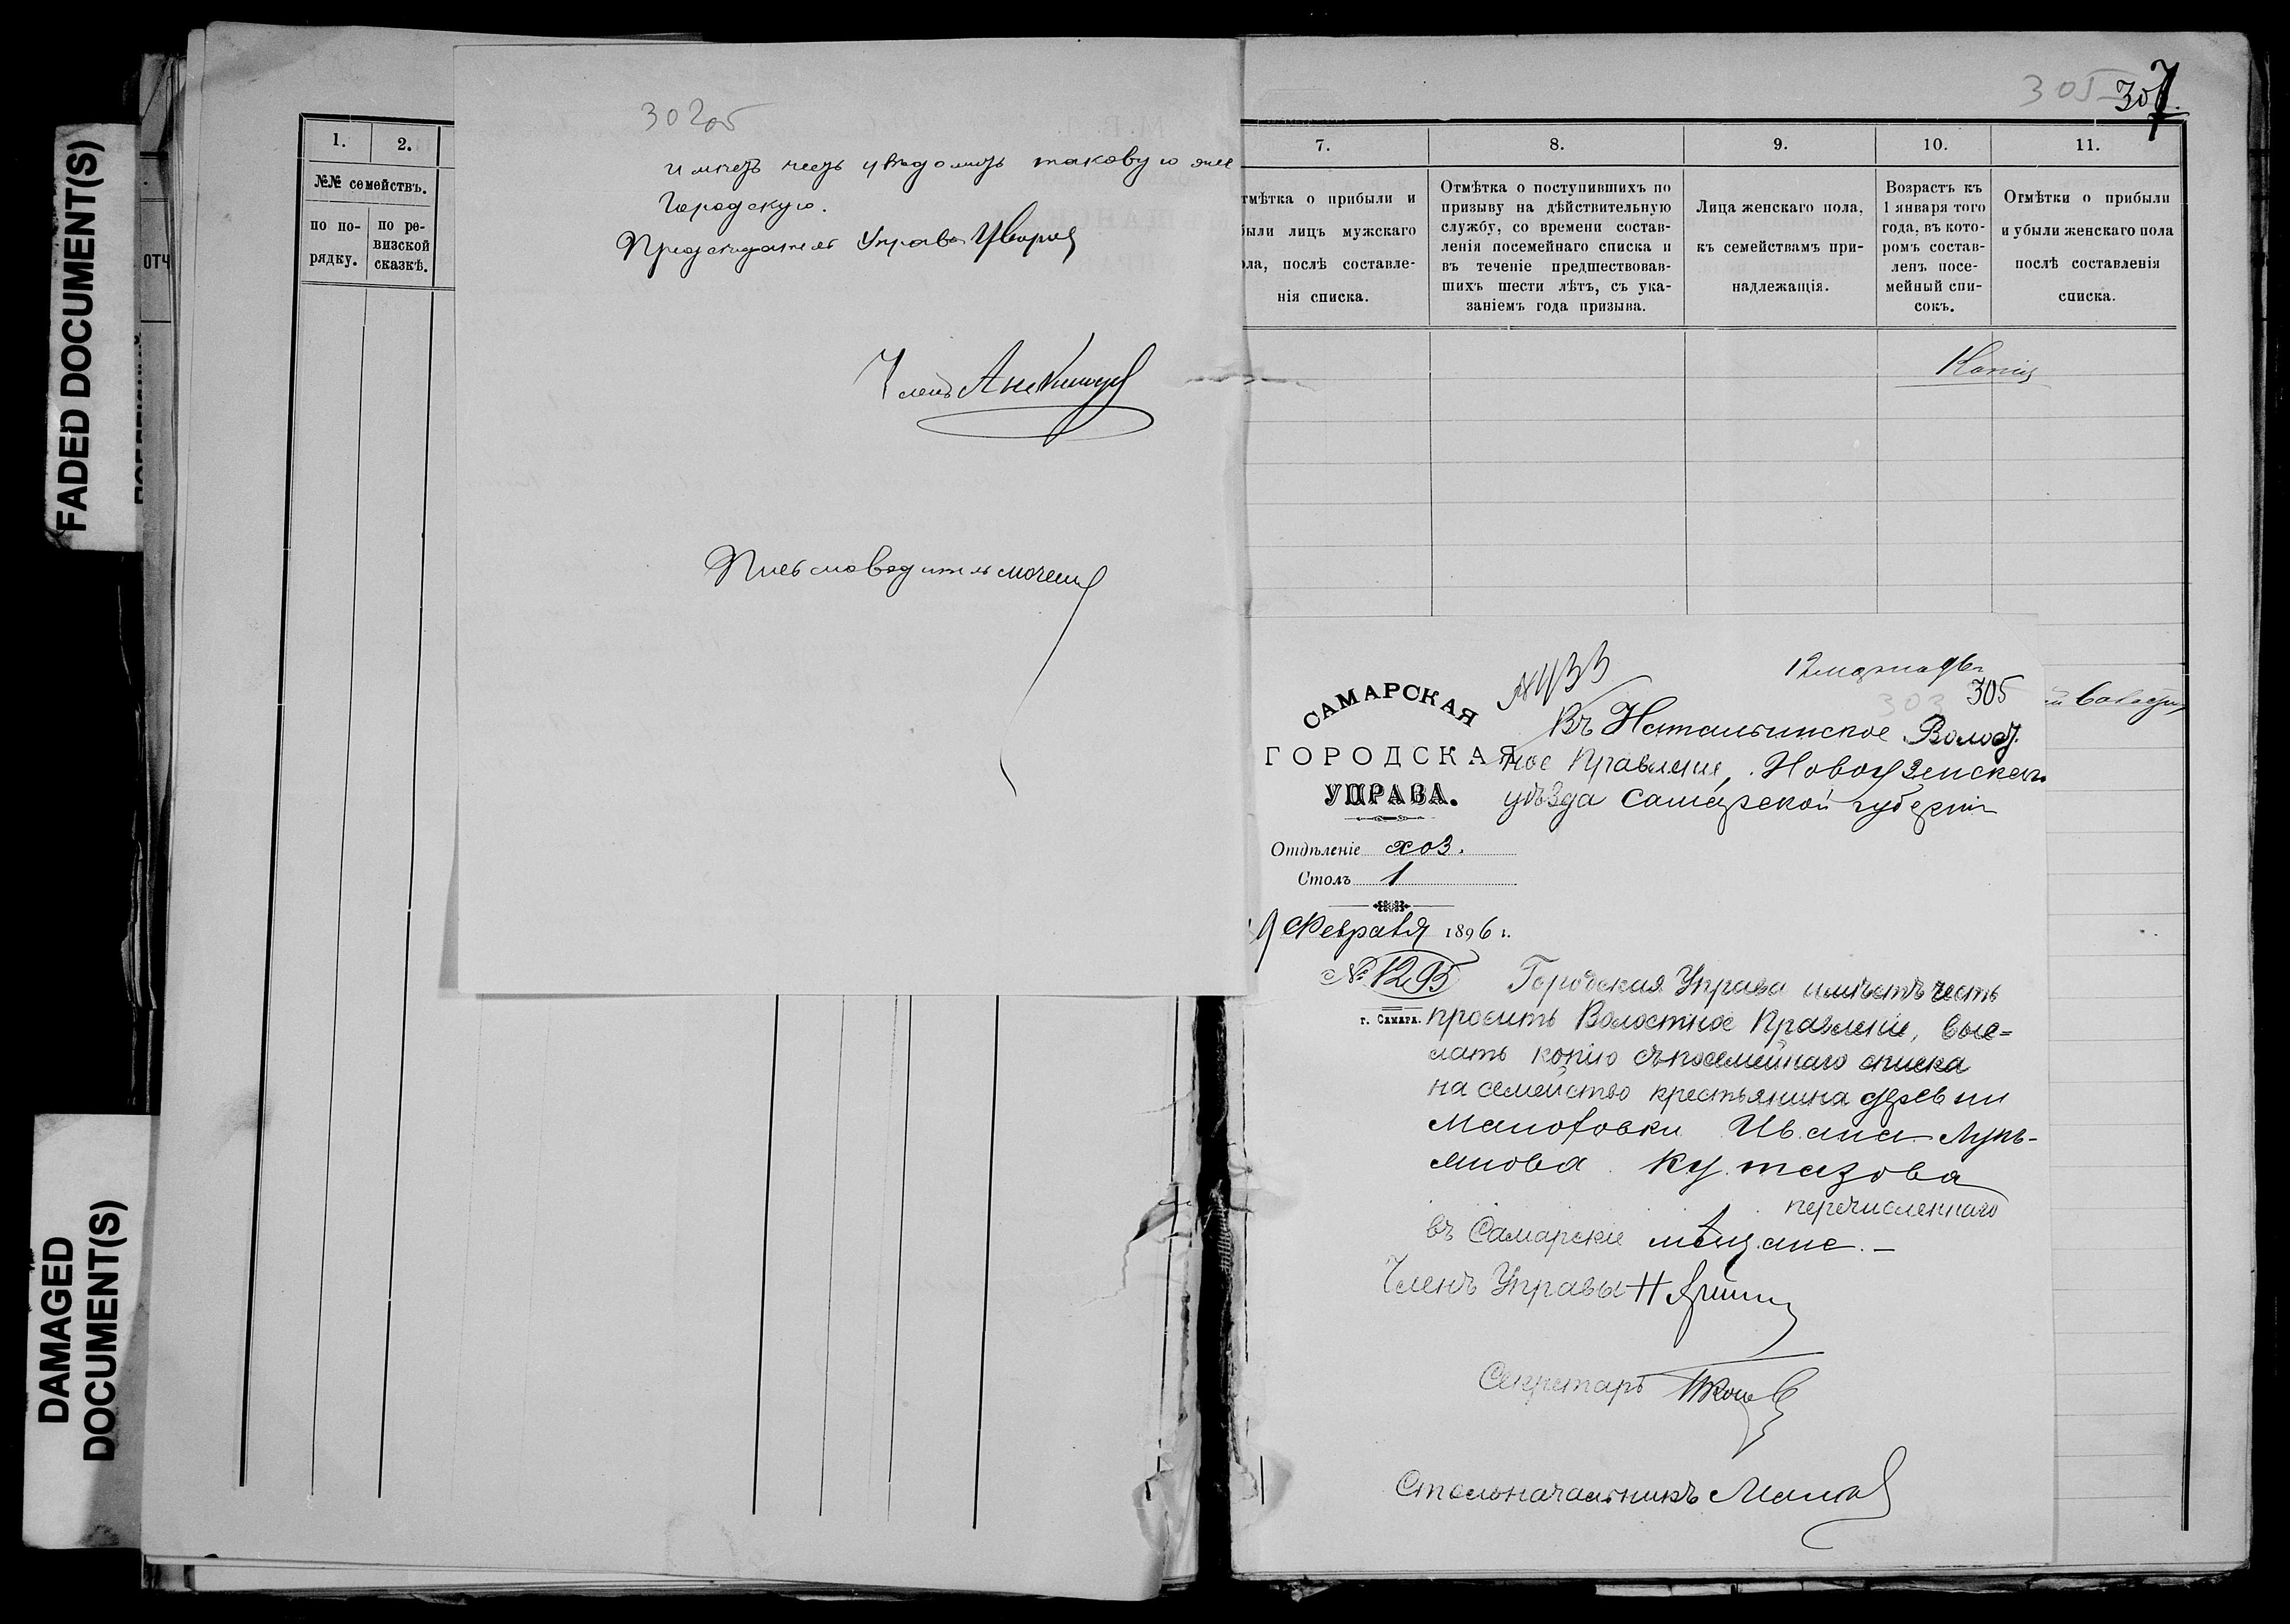 FADED DOCUMENT(S)
DAMAGED
DOCUMENT(S)
ОТЧ
1.
2.
№№ семействъ.
по по-
рядку.
по ре-
визской
сказкѣ.
302об
имѣетъ честь увѣдомить таковую же
Городскую.
Предсѣдатель Управы
Членъ
Письмоводитель
305
307
7.
8.
9.
10.
11.
тмѣтка о прибыли и
были лицъ мужскаго
ола, послѣ составле-
нія списка.
Отмѣтка о поступившихъ по
призыву на дѣйствительную
службу, со времени состав-
ленія посемейнаго списка и
въ теченіе предшествовав-
шихъ шести лѣтъ, съ ука-
заніемъ года призыва.
Лица женскаго пола,
къ семействамъ при-
надлежащія.
Возрастъ къ
1 января того
года, въ кото-
ромъ состав-
ленъ посе-
мейный спи-
сокъ.
Отмѣтки о прибыли
и убыли женскаго пола
послѣ составленія
списка.
Копія
№ 1133
12 марта 96 г
303 305
САМАРСКАЯ
ГОРОДСКАЯ
УПРАВА.
Въ Натальинское Волост
ное Правленіе, Новоузенскаго
уѣзда Самарской губерніи
Отдѣленіе хоз.
Столъ 1
19 Февраля 1896 г.
№ 1295
г. Самара.
Городская Управа имѣетъ честь
просить Волостное Правленіе, выс=
лать копію съ посемейнаго списка
на семейство крестьянина деревни
Малофовки Ивана Лукь-
янова Кутазова
перечисленнаго
въ Самарскіе мѣщане. —
Членъ Управы Н
Секретарь
Столоначальникъ